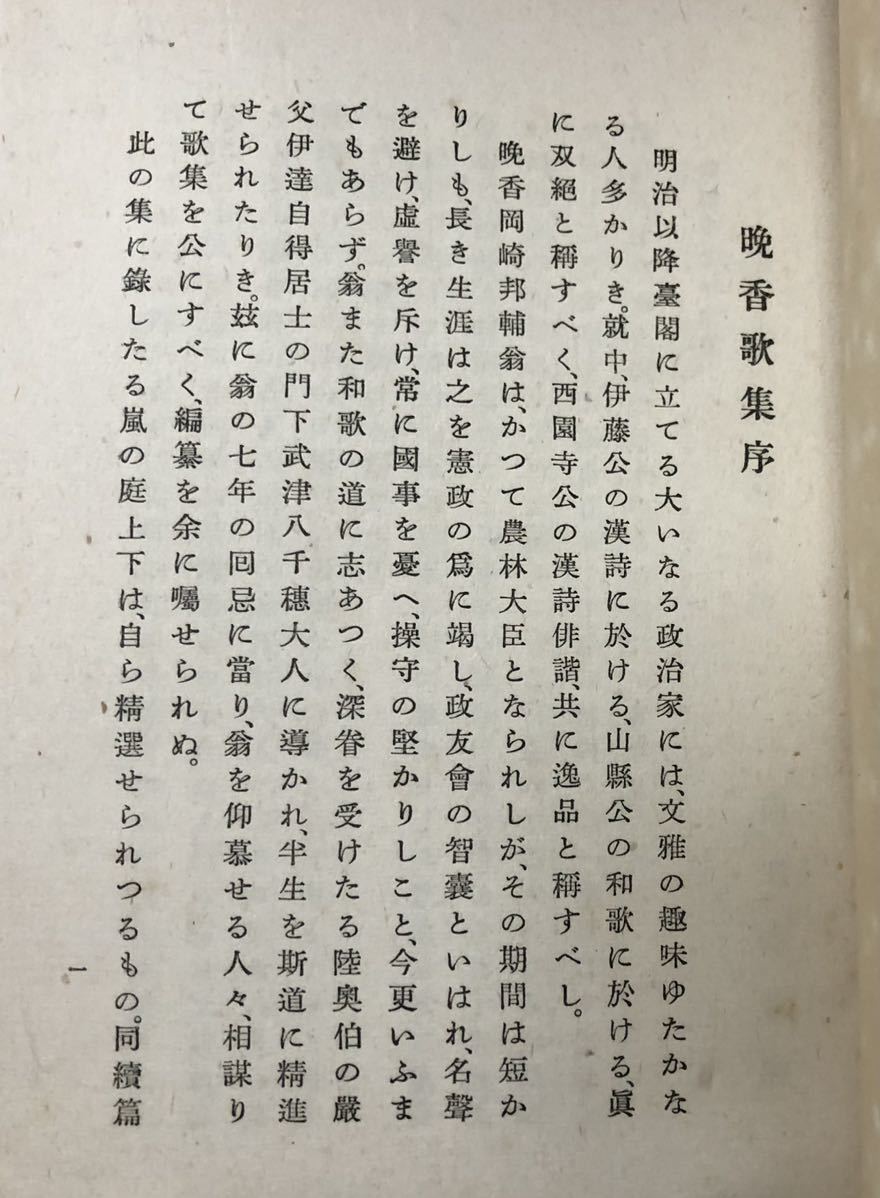 晩香歌集序
明治以降臺閣に立てる大いなる政治家には、文雅の趣味ゆたかな
る人多かりき。就中、伊藤公の漢詩に於ける、山縣公の和歌に於ける、眞
に双絕と稱すべく、西園寺公の漢詩俳諧、共に逸品と稱すべし。
晩香岡崎邦輔翁は、かつて農林大臣となられしが、その期間は短か
りしも、長き生涯は之を憲政の爲に竭し、政友會の智囊といはれ、名聲
を避け、虛譽を斥け、常に國事を憂へ、操守の堅かりしこと、今更いふま
でもあらず。翁また和歌の道に志あつく、深眷を受けたる陸奥伯の嚴
父伊達自得居士の門下武津八千穗大人に導かれ、半生を斯道に精進
せられたりき。玆に翁の七年の囘忌に當り、翁を仰慕せる人々、相謀り
て歌集を公にすべく、編纂を余に囑せられぬ。
此の集に錄したる嵐の庭上下は、自ら精選せられつるもの。同續篇
一